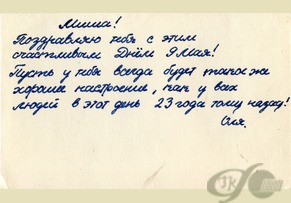 Миша!
Поздравляю тебя с этим
счастливым Днём 9 Мая!
Пусть у тебя всегда будет такое же
хорошее настроение, как у всех
людей в этот день 23 года тому назад!
Оля.